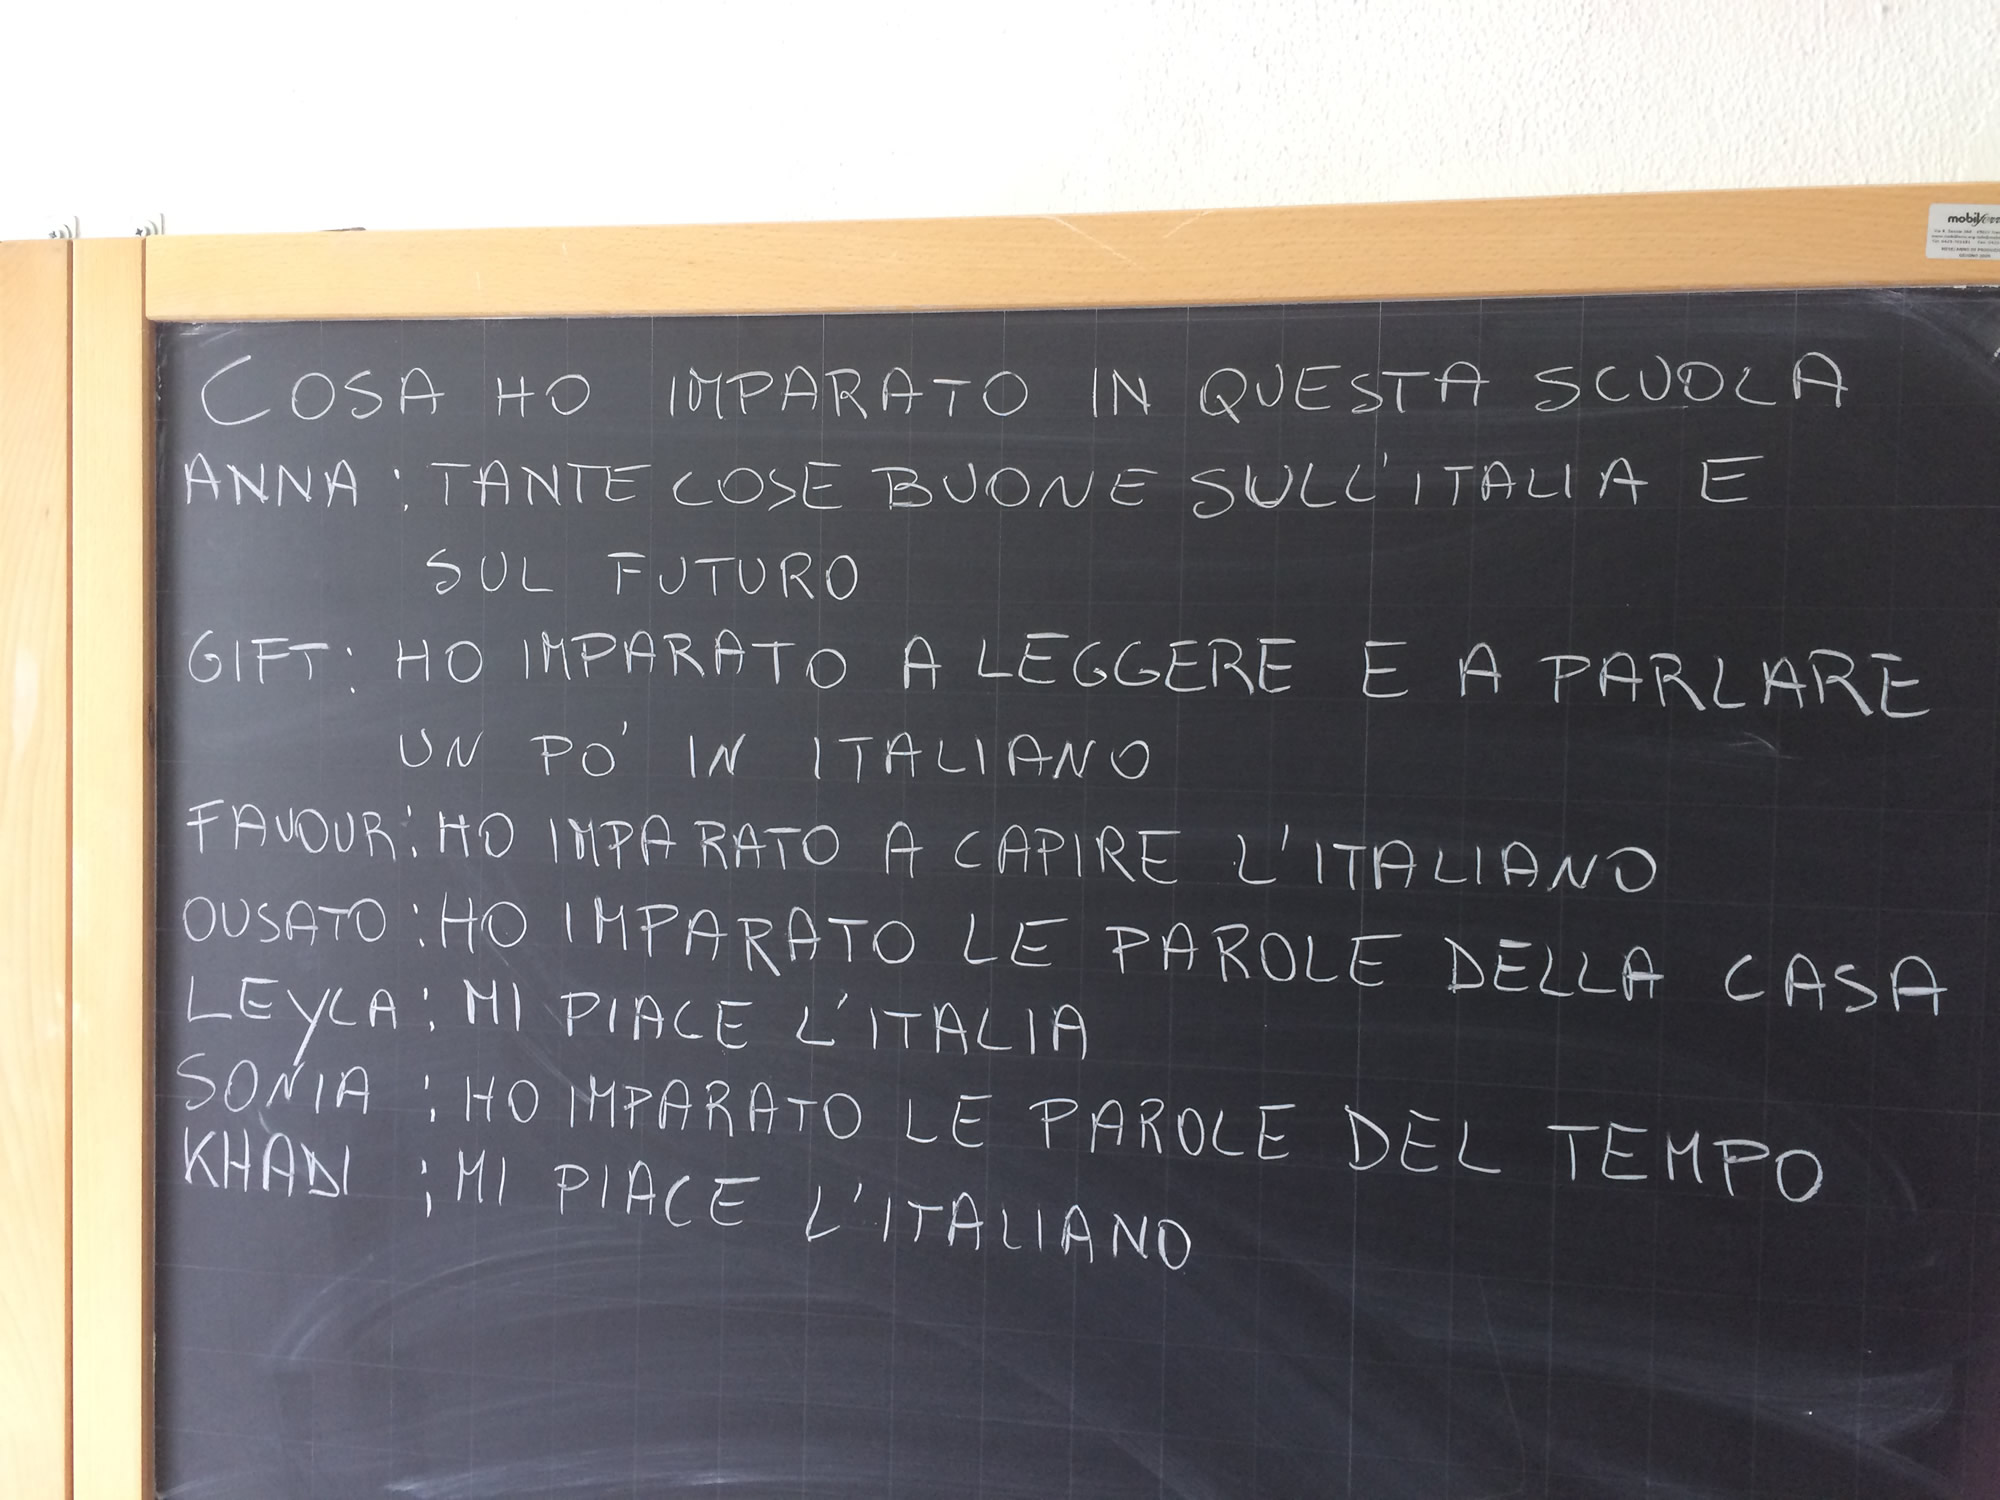 COSA HO IMPARATO IN QUESTA SCUOLA
ANNA: TANTE COSE BUONE SULL'ITALIA E
SUL FUTURO
GIFT: HO IMPARATO A LEGGERE E A PARLARE
UN PO' IN ITALIANO
FAVOUR: HO IMPARATO A CAPIRE L'ITALIANO
OUSATO: HO IMPARATO LE PAROLE DELLA CASA
LEYLA: MI PIACE L'ITALIA
SONIA: HO IMPARATO LE PAROLE DEL TEMPO
KHADI: MI PIACE L'ITALIANO